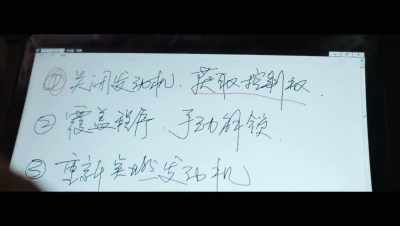 ① 关闭发动机、获取控制权.
② 覆盖程序、手动解锁.
③ 重新发动机